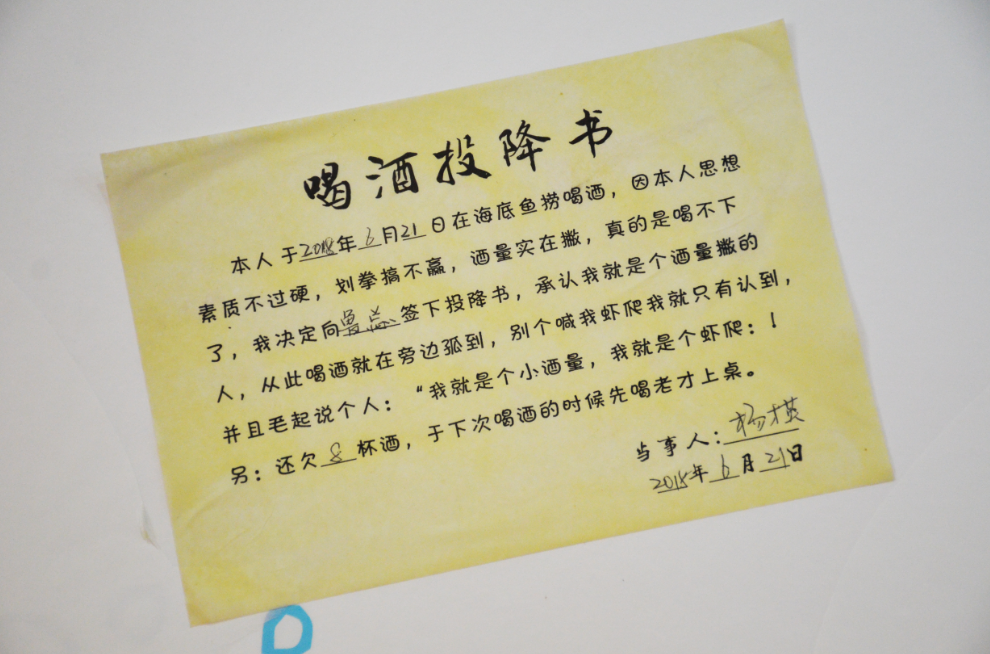 喝酒投降书
本人于2018年6月21日在海底鱼捞喝酒，因本人思想
素质不过硬，划拳搞不赢，酒量实在撇，真的是喝不下
了，我决定向曼总签下投降书，承认我就是个酒量撇的
人，从此喝酒就在旁边孤到，别个喊我虾爬我就只有认到，
并且毛起说个人：“我就是个小酒量，我就是个虾爬：！
另：还欠8杯酒，于下次喝酒的时候先喝老才上桌。
当事人：杨棋
2018年6月21日